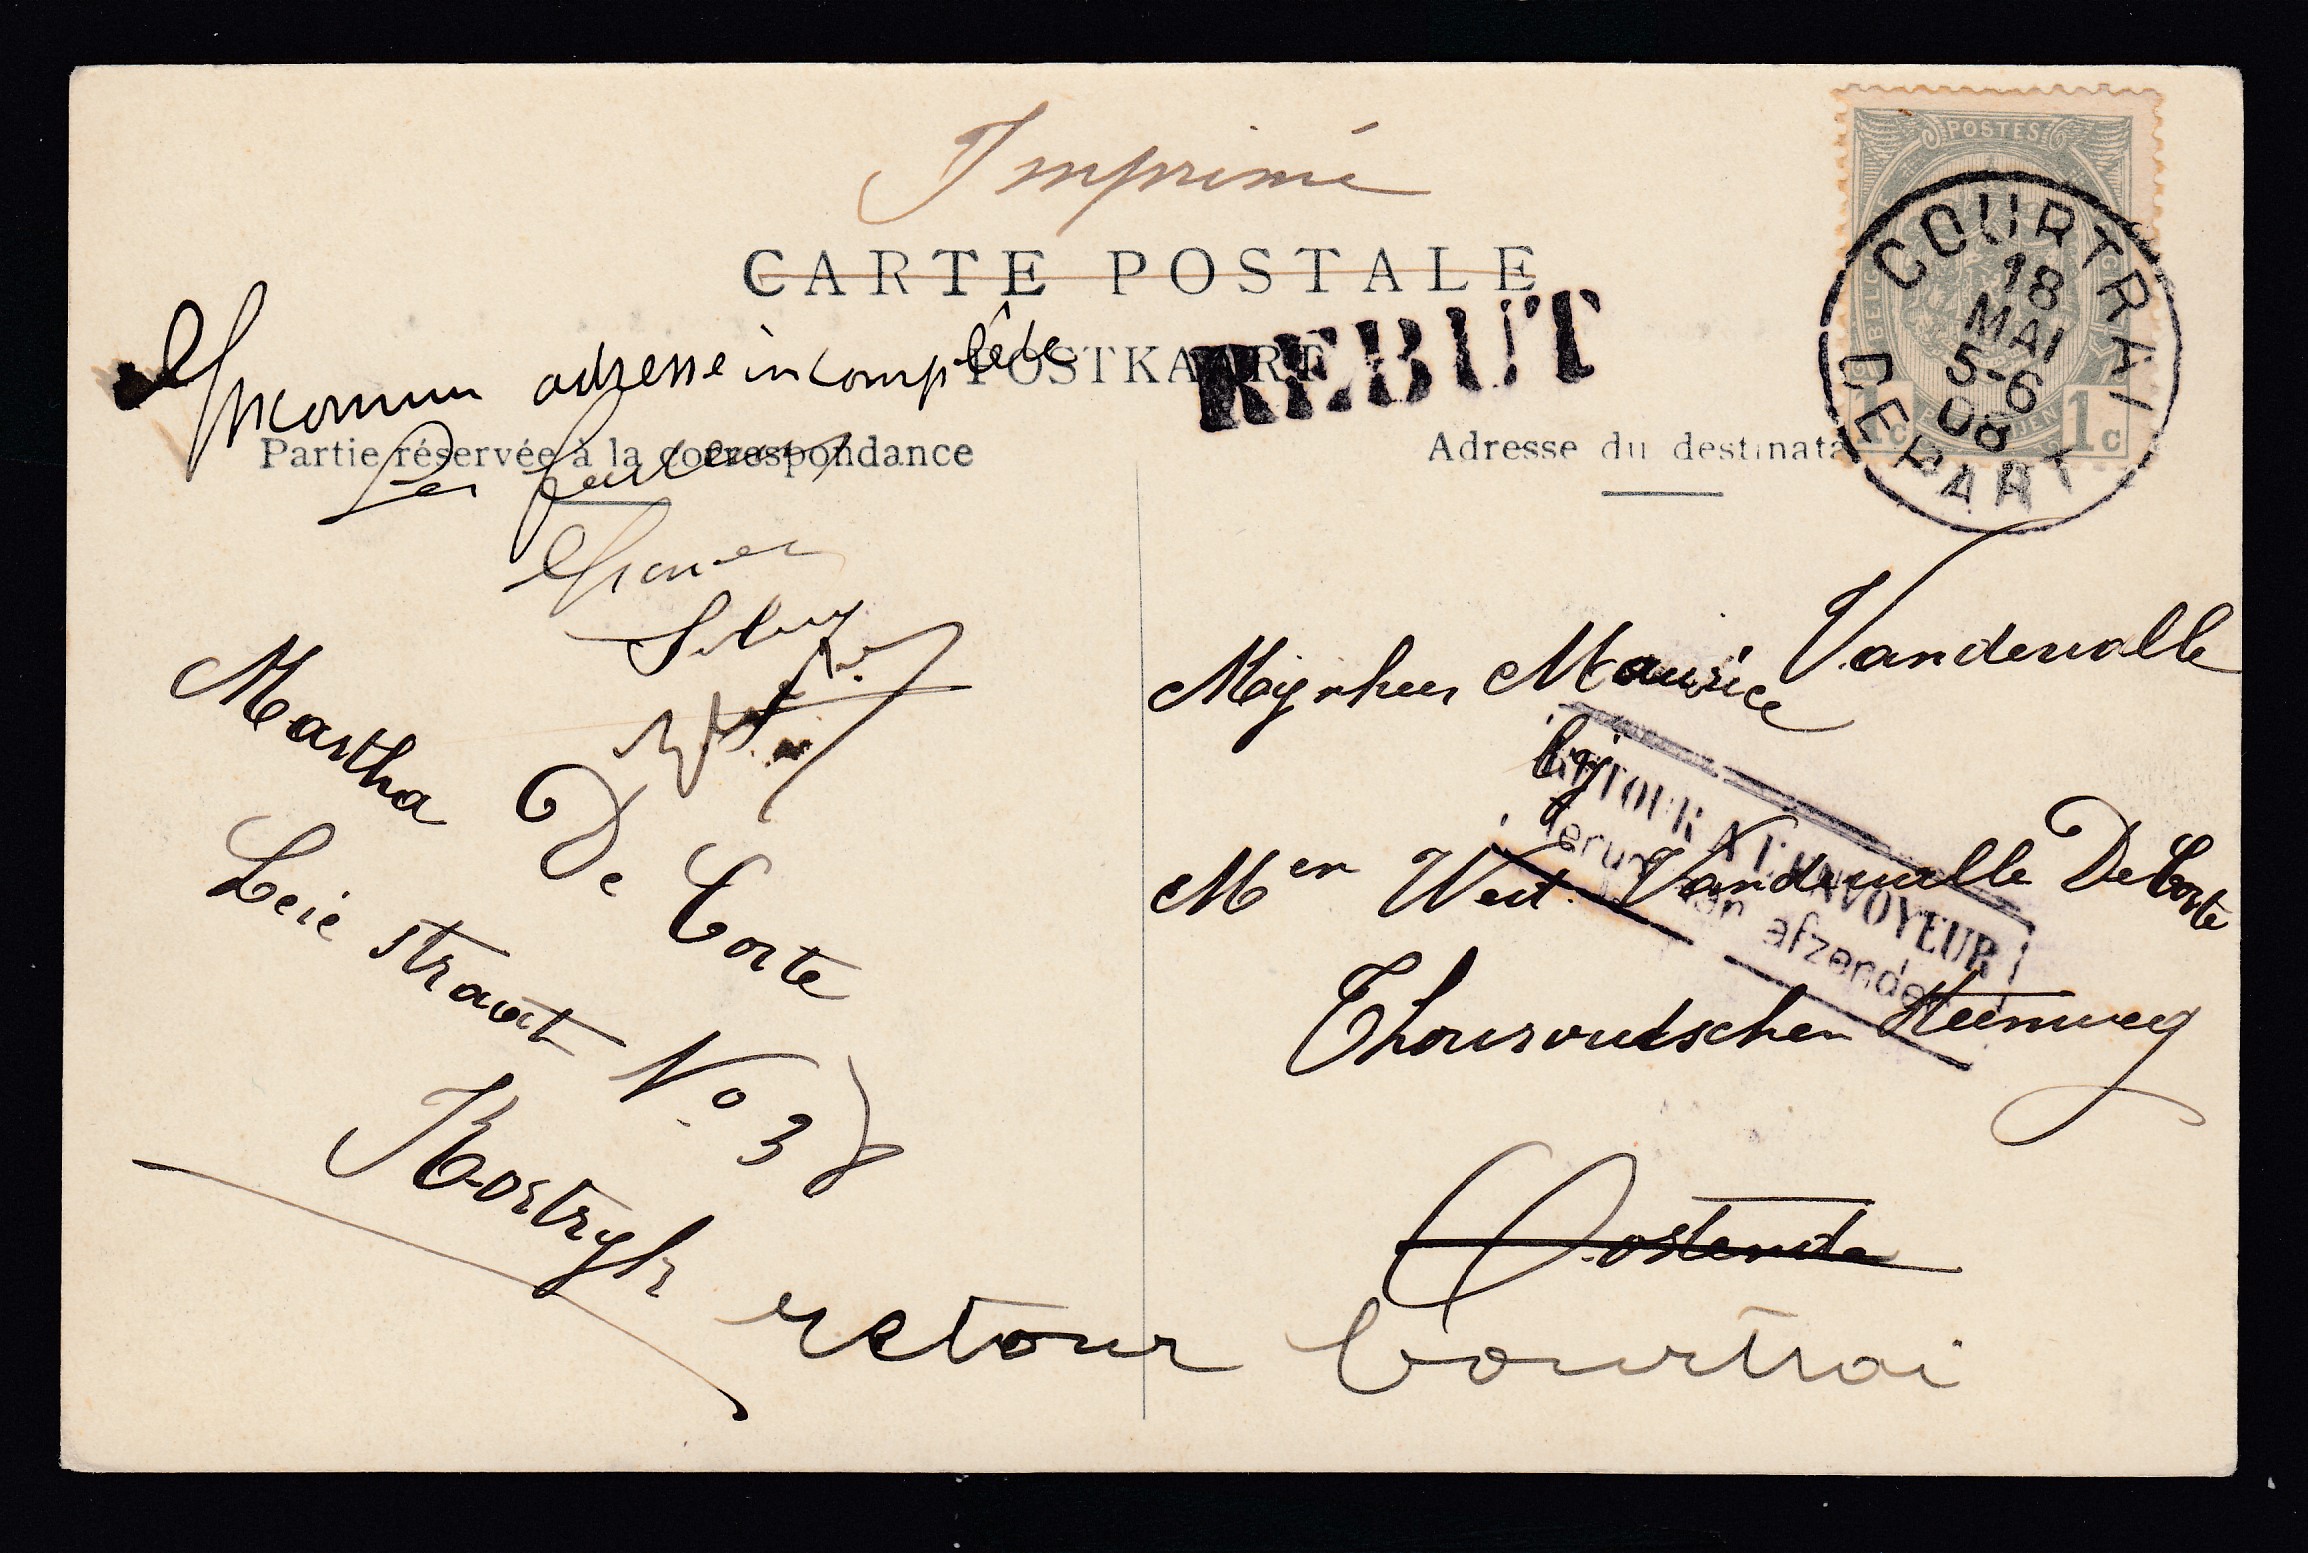 Imprimé
CARTE POSTALE
POSTKAART
REBUT
POSTES
1c 1c
COURTRAI
18
MAI
5-6
08
DEPART
Inconnu adresse incomplète
Partie réservée à la correspondance
Adresse du destinata
Les facteurs
Martha De Corte
Leie straat No 38
Kortryk
Mijnheer Maurice Vandewalle
bij
Men Wed. Vandewalle De Corte
Thouroutschen Steenweg
Oostende
RETOUR A L'ENVOYEUR
Terug aan afzender
retour Courtrai